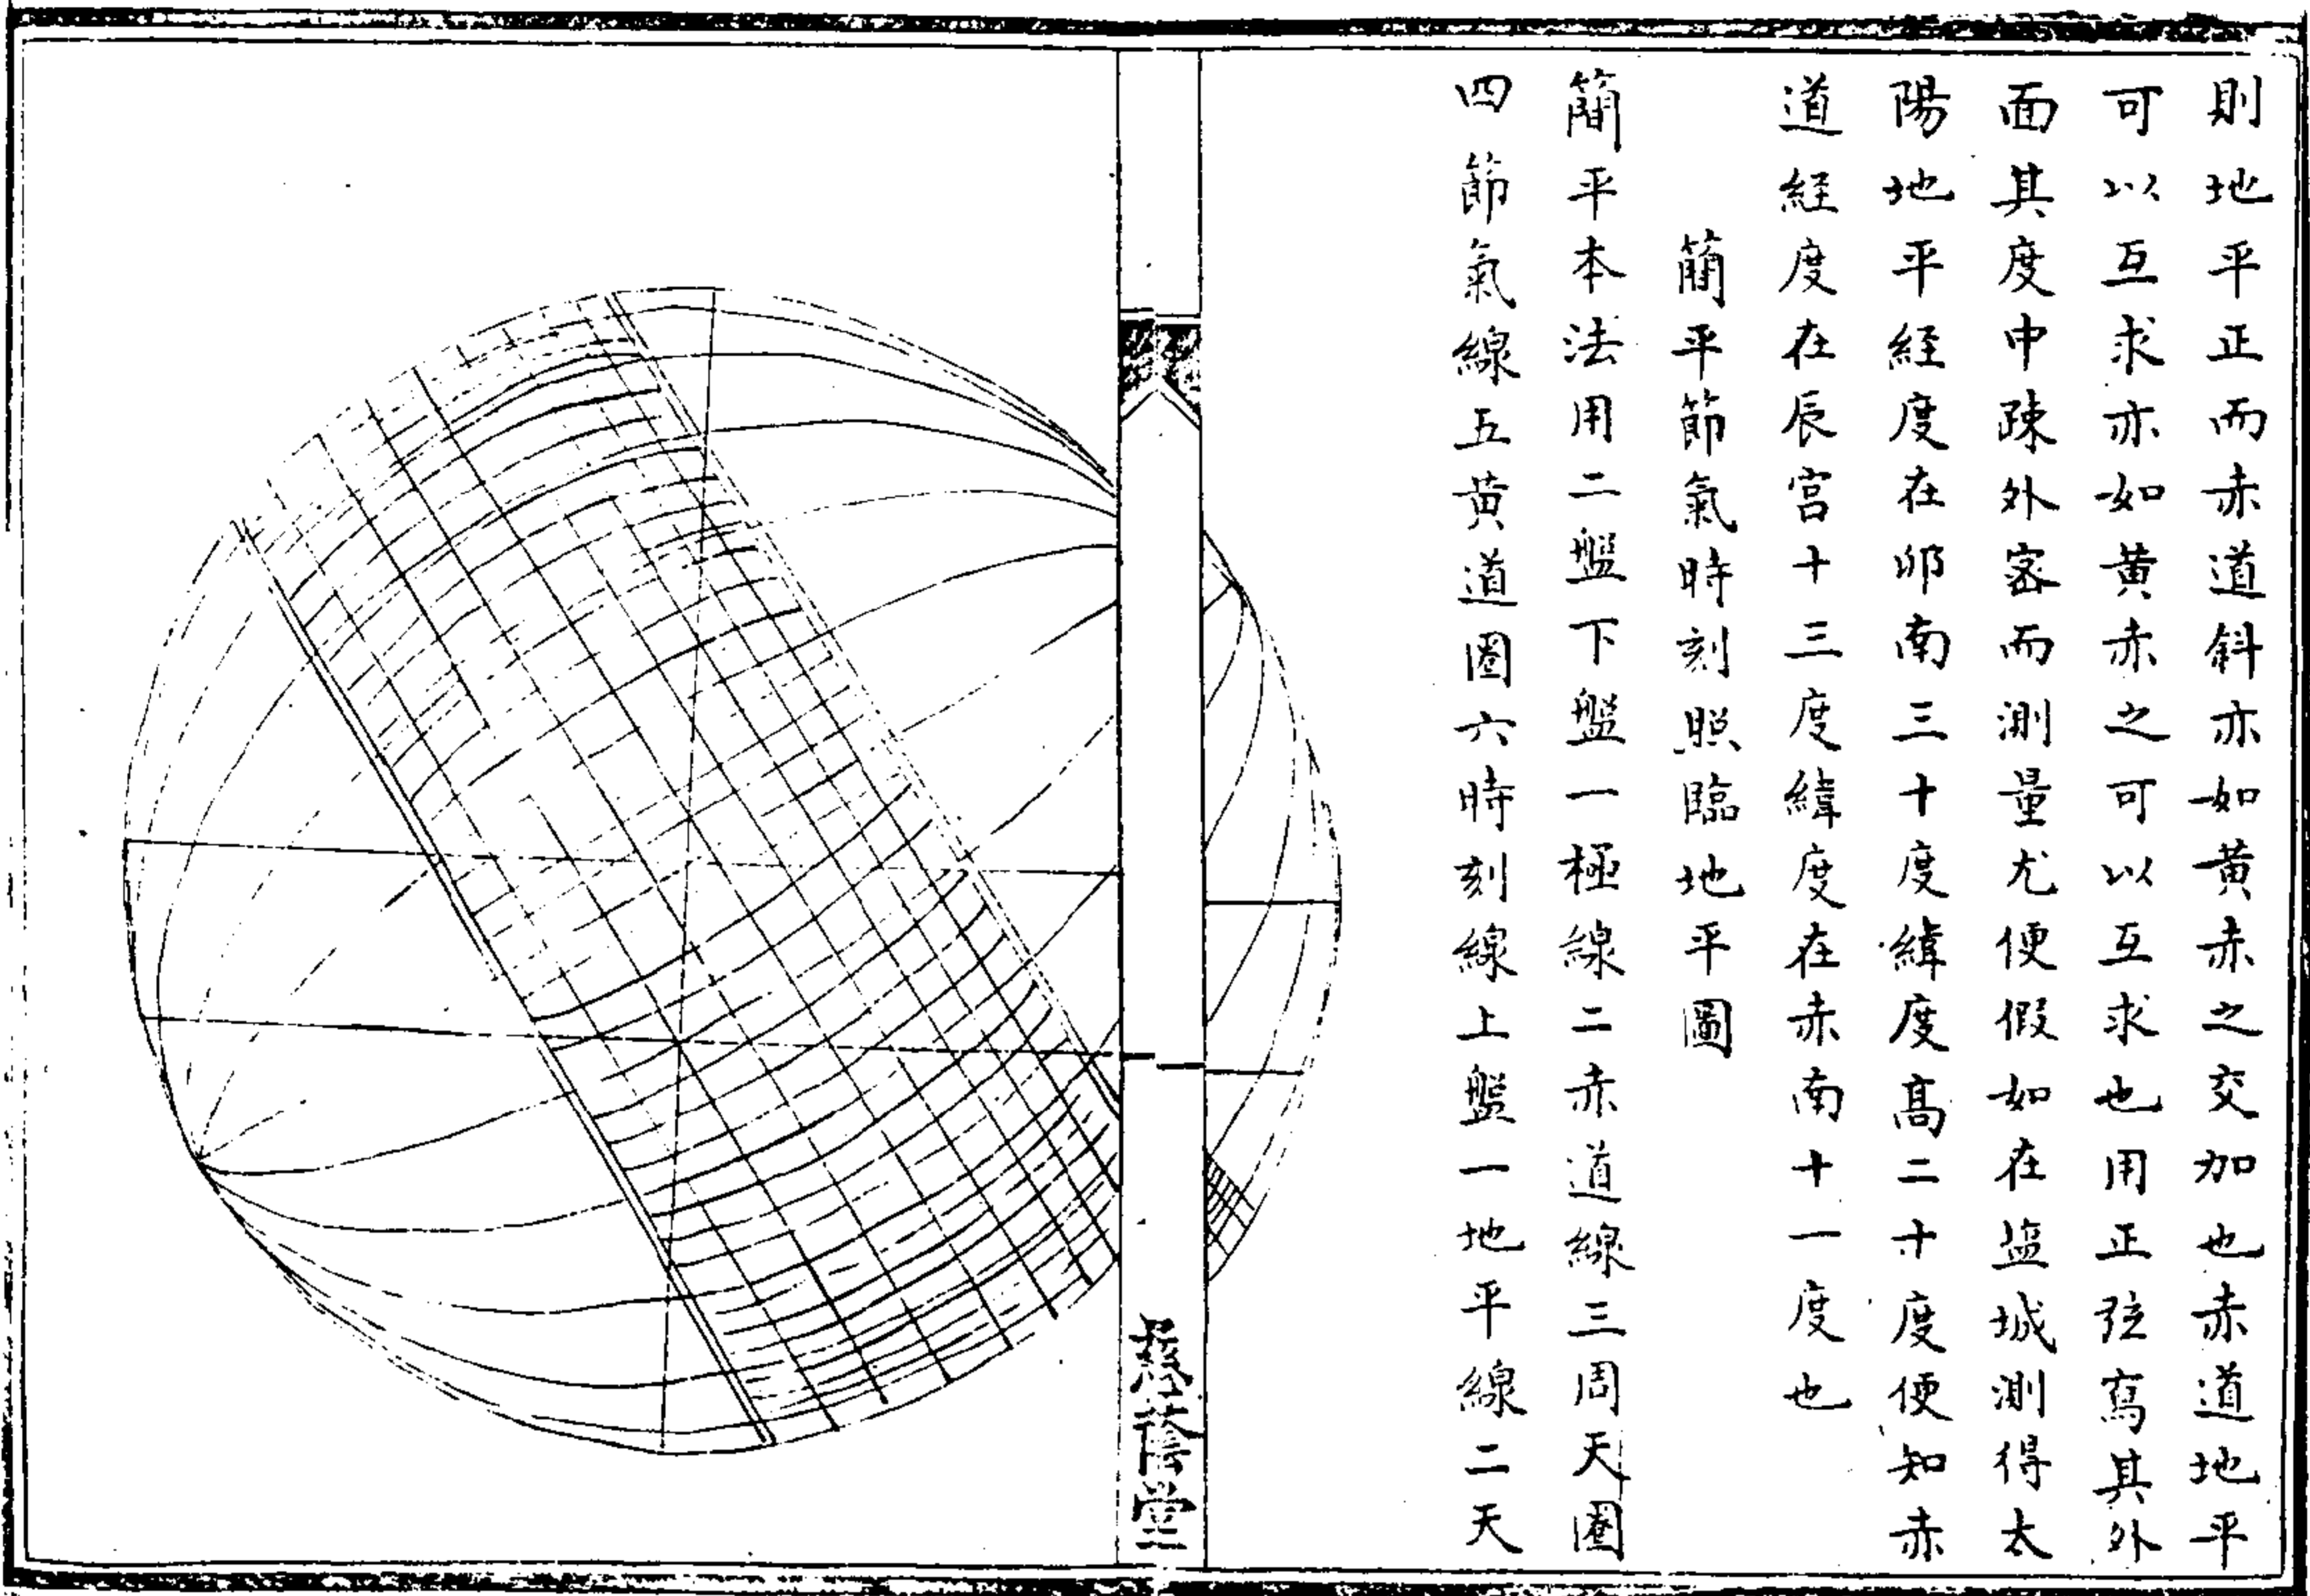 則地平正而赤道斜亦如黄赤之交加也赤道地平
可以互求亦如黄赤之可以互求也用正弦寫其外
面其度中疎外宻而測量尤便假如在塩城測得太
陽地平経度在夘南三十度緯度髙二十度便知赤
道経度在辰宫十三度緯度在赤南十一度也
簡平節氣時刻照臨地平圖
簡平本法用二盤下盤一極線二赤道線三周天圏
四節氣線五黄道圏六時刻線上盤一地平線二天
蔭堂